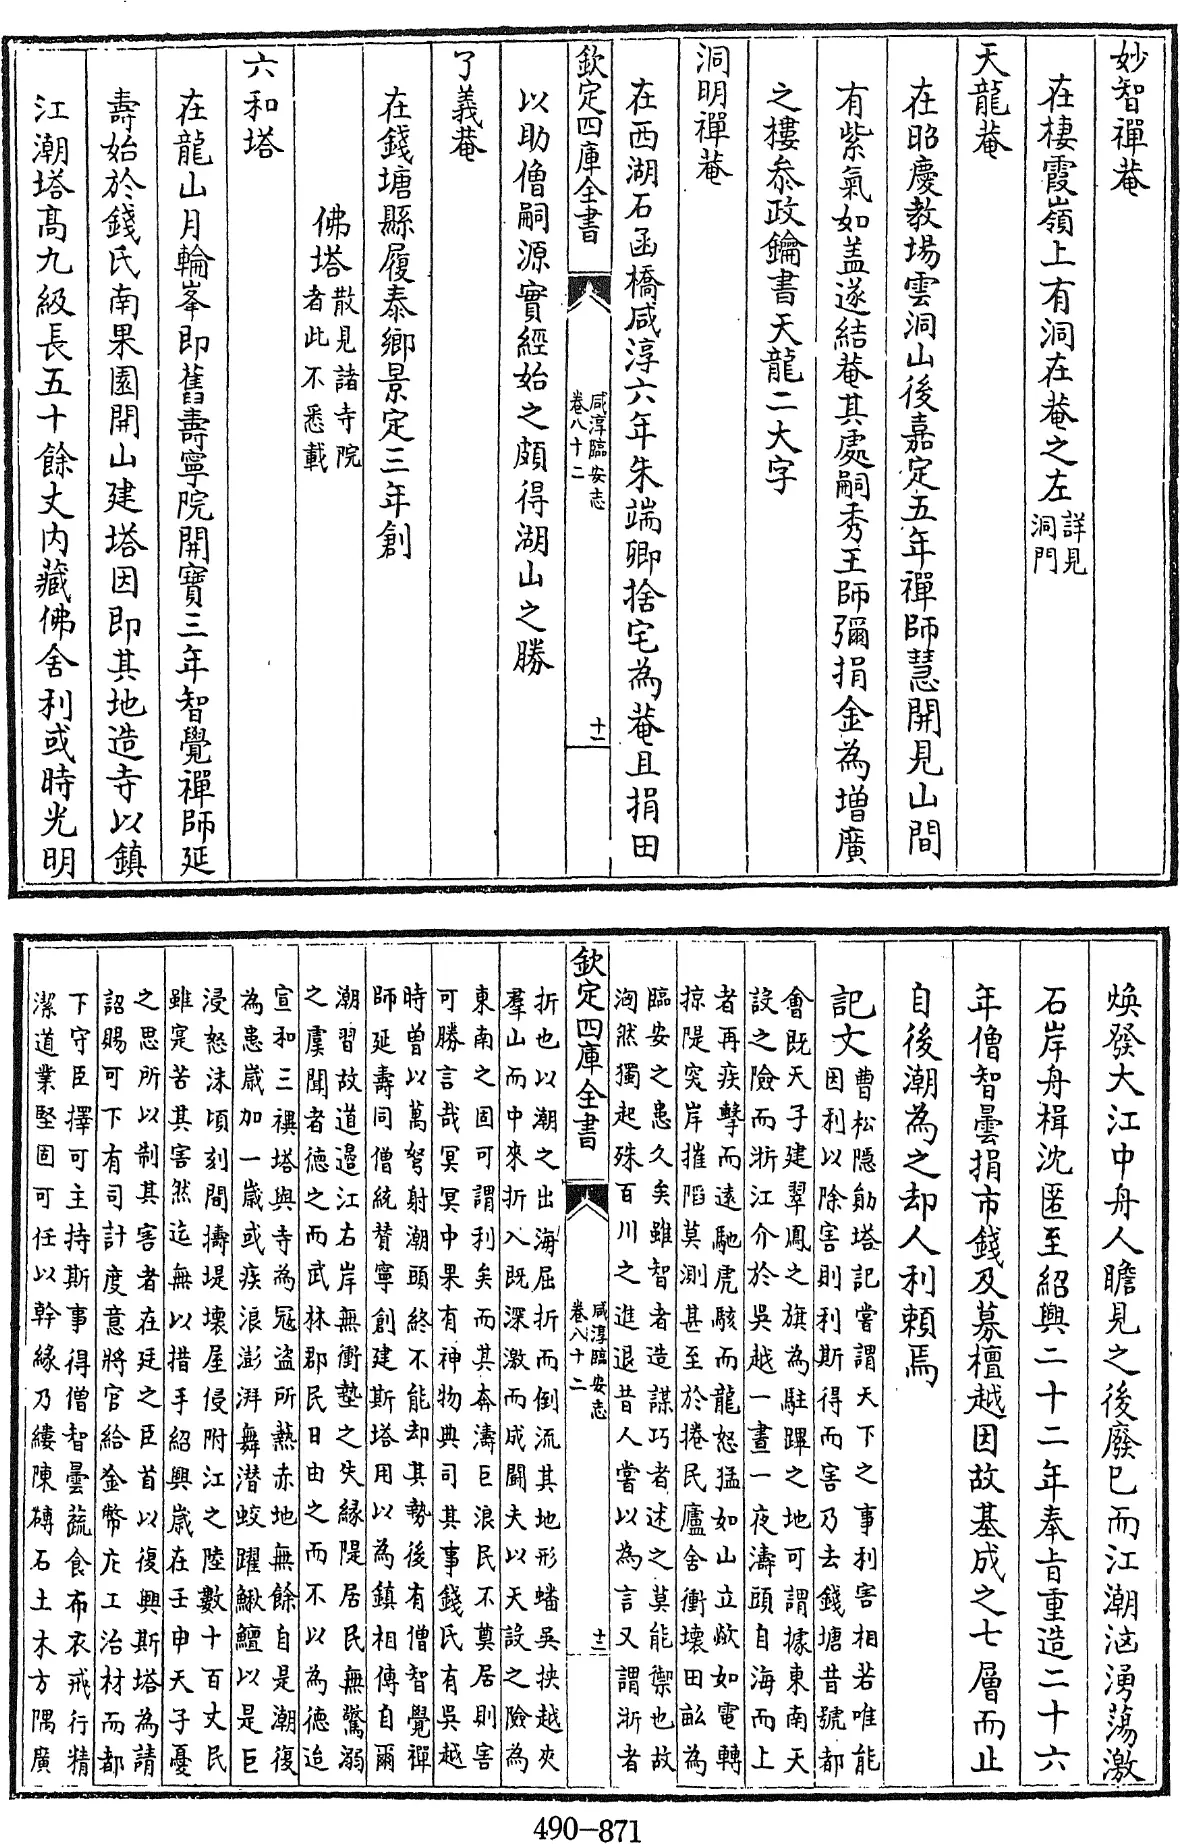 妙智禪菴
在棲霞嶺上有洞在菴之左詳見
洞門
天龍菴
在昭慶教場雲洞山後嘉定五年禪師慧開見山間
有紫氣如盖遂結菴其處嗣秀王師彌捐金為增廣
之樓叅政鑰書天龍二大字
洞明禪菴
在西湖石函橋咸淳六年朱端卿捨宅為菴且捐田
欽定四庫全書
咸淳臨安志
卷八十二
十一
以助僧嗣源實經始之頗得湖山之勝
了義菴
在錢塘縣履泰鄉景定三年創
佛塔散見諸寺院
者此不悉載
六和塔
在龍山月輪峯即舊壽寧院開寶三年智覺禪師延
壽始於錢氏南果園開山建塔因即其地造寺以鎮
江潮塔髙九級長五十餘丈内藏佛舍利或時光明
煥發大江中舟人瞻見之後廢已而江潮洶湧蕩激
石岸舟楫沈匿至紹興二十二年奉旨重造二十六
年僧智曇捐市錢及募檀越因故基成之七層而止
自後潮為之却人利賴焉
記文曹松隠勛塔記嘗謂天下之事利害相若唯能
因利以除害則利斯得而害乃去錢塘昔號都
會既天子建翠鳳之旗為駐蹕之地可謂據東南天
設之險而浙江介於吳越一晝一夜濤頭自海而上
者再疾擊而遠馳虎駭而龍怒猛如山立欻如電轉
掠隄突岸摧陷莫測甚至於捲民廬舍衝壞田畝為
臨安之患久矣雖智者造謀巧者述之莫能禦也故
洶然獨起殊百川之進退昔人嘗以為言又謂浙者
欽定四庫全書
咸淳臨安志
卷八十二
十二
折也以潮之出海屈折而倒流其地形蟠吳挾越夾
羣山而中來折入既深激而成鬬夫以天設之險為
東南之固可謂利矣而其奔濤巨浪民不奠居則害
可勝言哉冥冥中果有神物典司其事錢氏有吳越
時曽以萬弩射潮頭終不能却其勢後有僧智覺禪
師延壽同僧統賛寧創建斯塔用以為鎮相傳自爾
潮習故道邉江右岸無衝墊之失縁隄居民無驚溺
之虞聞者徳之而武林郡民日由之而不以為徳迨
宣和三禩塔與寺為冦盜所爇赤地無餘自是潮復
為患嵗加一嵗或疾浪澎湃舞潛蛟躍鰍鱣以是巨
浸怒沫頃刻間擣堤壞屋侵附江之陸數十百丈民
雖寔苦其害然迄無以措手紹興嵗在壬申天子憂
之思所以制其害者在廷之臣首以復興斯塔為請
詔賜可下有司計度意將官給金幣庀工治材而都
下守臣擇可主持斯事得僧智曇蔬食布衣戒行精
潔道業堅固可任以幹縁乃縷陳磚石土木方隅廣
490-871